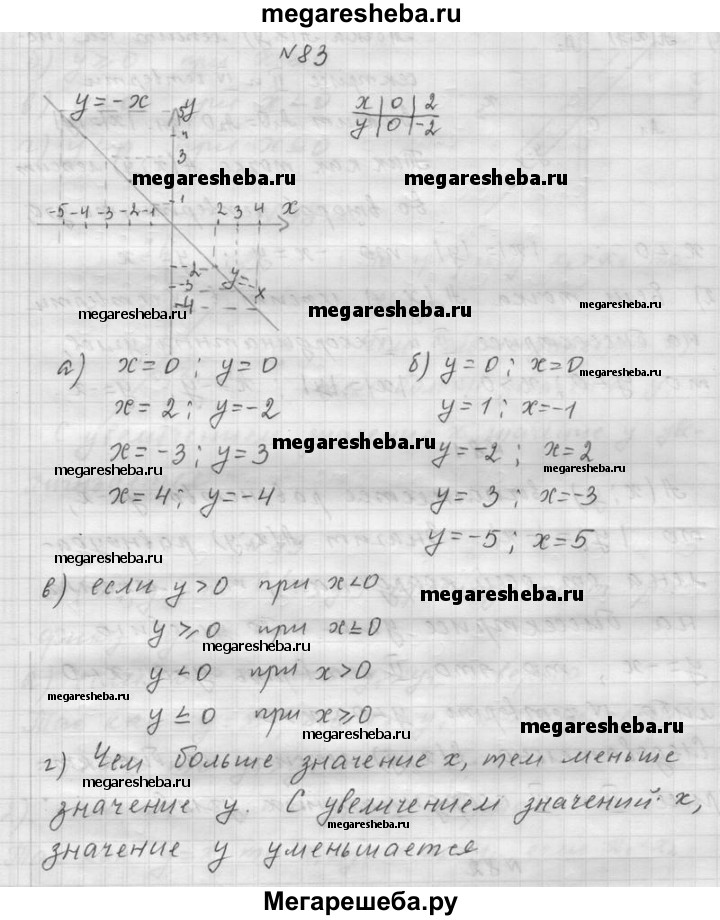 megaresheba.ru
№83
y=-x
y
x | 0 | 2
y | 0 | -2
5
4
3
megaresheba.ru megaresheba.ru
1
-5 -4 -3 -2 -1 2 3 4 x
-2
-3
-4
y=-x
megaresheba.ru megaresheba.ru megaresheba.ru
а) x=0; y=0 б) y=0; x=0
megaresheba.ru
x=2; y=-2 y=1; x=-1
megaresheba.ru
x=-3; y=3 y=-2; x=2
megaresheba.ru megaresheba.ru
x=4; y=-4 y=3; x=-3
y=-5; x=5
megaresheba.ru
в) если y>0 при x<0
megaresheba.ru
y⩾0 при x≤0
megaresheba.ru
y<0 при x>0
megaresheba.ru
y≤0 при x⩾0
megaresheba.ru megaresheba.ru
г) Чем больше значение x, тем меньше
megaresheba.ru
значение y. С увеличением значений x,
megaresheba.ru
значение y уменьшается
Мегарешеба.ру